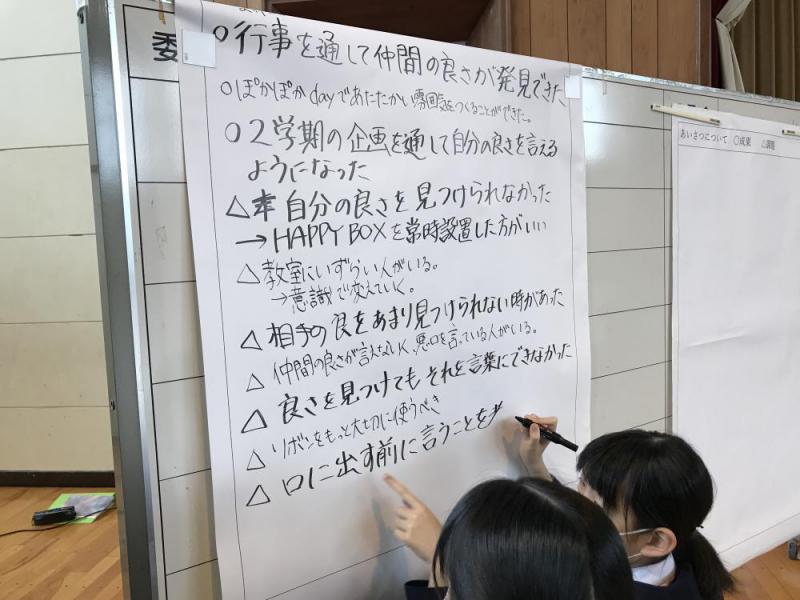 委
○行事を通して仲間の良さが発見できた
○ぽかぽかdayであたたかい雰囲気をつくることができた。
○2学期の企画を通して自分の良さを言える
ようになった
△自分の良さを見つけられなかった
→HAPPY BOXを常時設置した方がいい
△教室にいずらい人がいる。
→意識で変えていく。
△相手の良をあまり見つけられない時があった
△仲間の良さが言えないし、悪口を言っている人がいる。
△良さを見つけてもそれを言葉にできなかった
△リボンをもっと大切に使うべき
△口に出す前に言うことを
あいさつについて ○成果 △課題